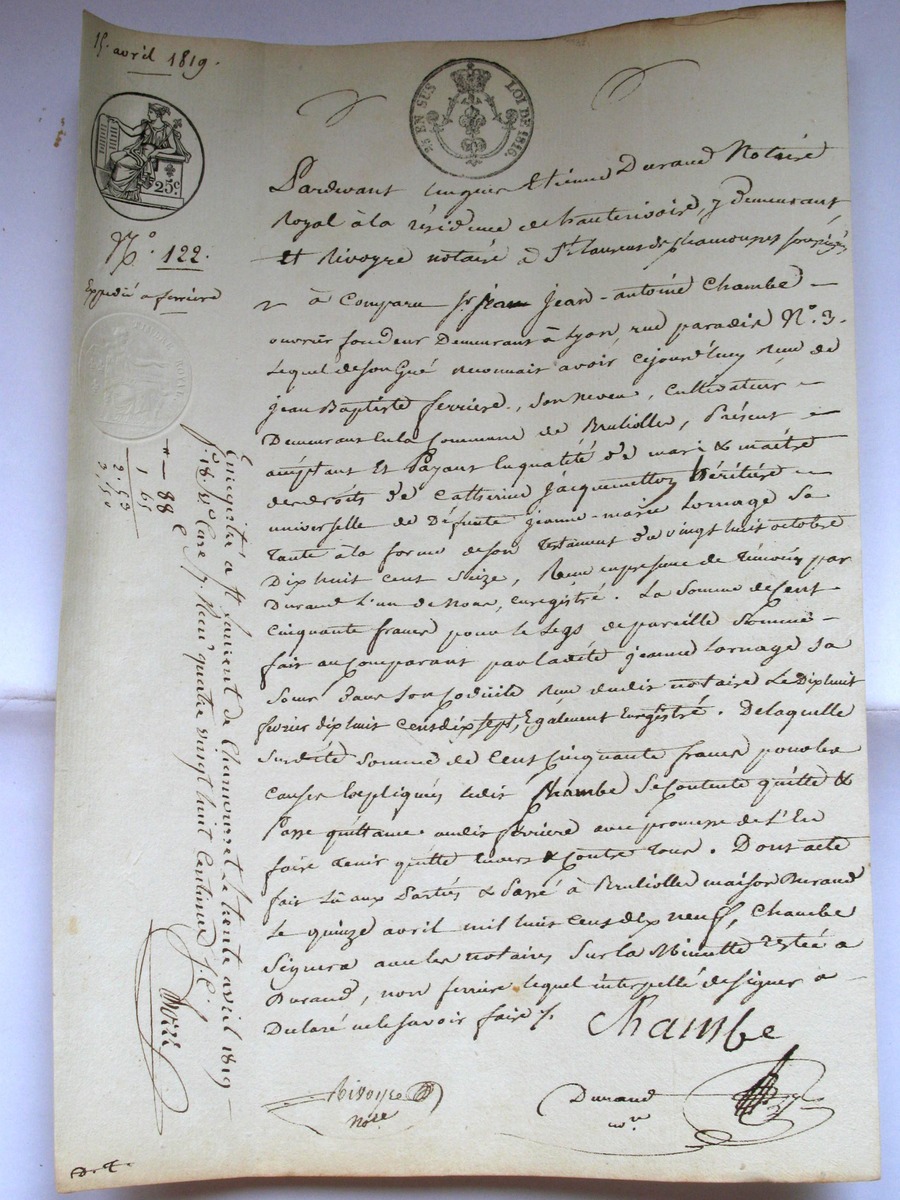 15. avril 1819.
25 EN SUS LOI DE 1816.
25c.
N.o 122.
Expédié a ferriere
Pardevant Etienne Durand Notaire
Royal à la résidence de hauterivoire, y demeurant
et Rivoyre notaire à St. laurent de chamousset soussignés
à Comparu Sr. jean jean-antoine Chambe
ouvrier fondeur Demeurant à Lyon, rue paradis N.o 3.
Lequel de son Gré reconnait avoir cejourd'huy Reçu de
jean Baptiste ferriere, son neveu, Cultivateur
Demeurant en la Commune de Brulliolles, Présent
acceptant Et Payant en qualité de mari & maitre
des droits de Catherine Jacquemetton héritière
universelle de Défunte jeanne-marie Lornage Sa
Tante à la forme de son Testament du vingt huit octobre
Dix huit cent Seize, Reçu en presence de témoins par
Durand L'un de Nous, enregistré. La Somme de Cent
Cinquante francs pour le Legs de pareille Somme
fait au Comparant par ladite jeanne Lornage sa
Soeur dans Son Codicile Reçu dudit notaire Le Dix huit
fevrier dix huit cent dix sept, Egalement Enregistré. De laquelle
Susdite Somme de Cent Cinquante francs pour les
Causes Expliquées ledit Chambe Se Contente quitte &
Passe quittance audit ferriere avec promesse de L'En
faire tenir quitte Envers & Contre Tous. Dont acte
fait Lû aux Parties & Passé à Brulliolles maison Durand
Le quinze avril mil huit Cent dix neuf, Chambe
Signera avec les notaires Sur la Minutte restée a
Durand, non ferriere lequel interpellé de signer a
Declaré ne le savoir faire
Chambe
Rivoyre
Nore.
Durand
nre
Enregistré a St. Laurent de Chamousset le trente avril 1819
f. 18. Vo. Case 7. Reçu quatre vingt huit Centimes
88 c
1 65
2.53